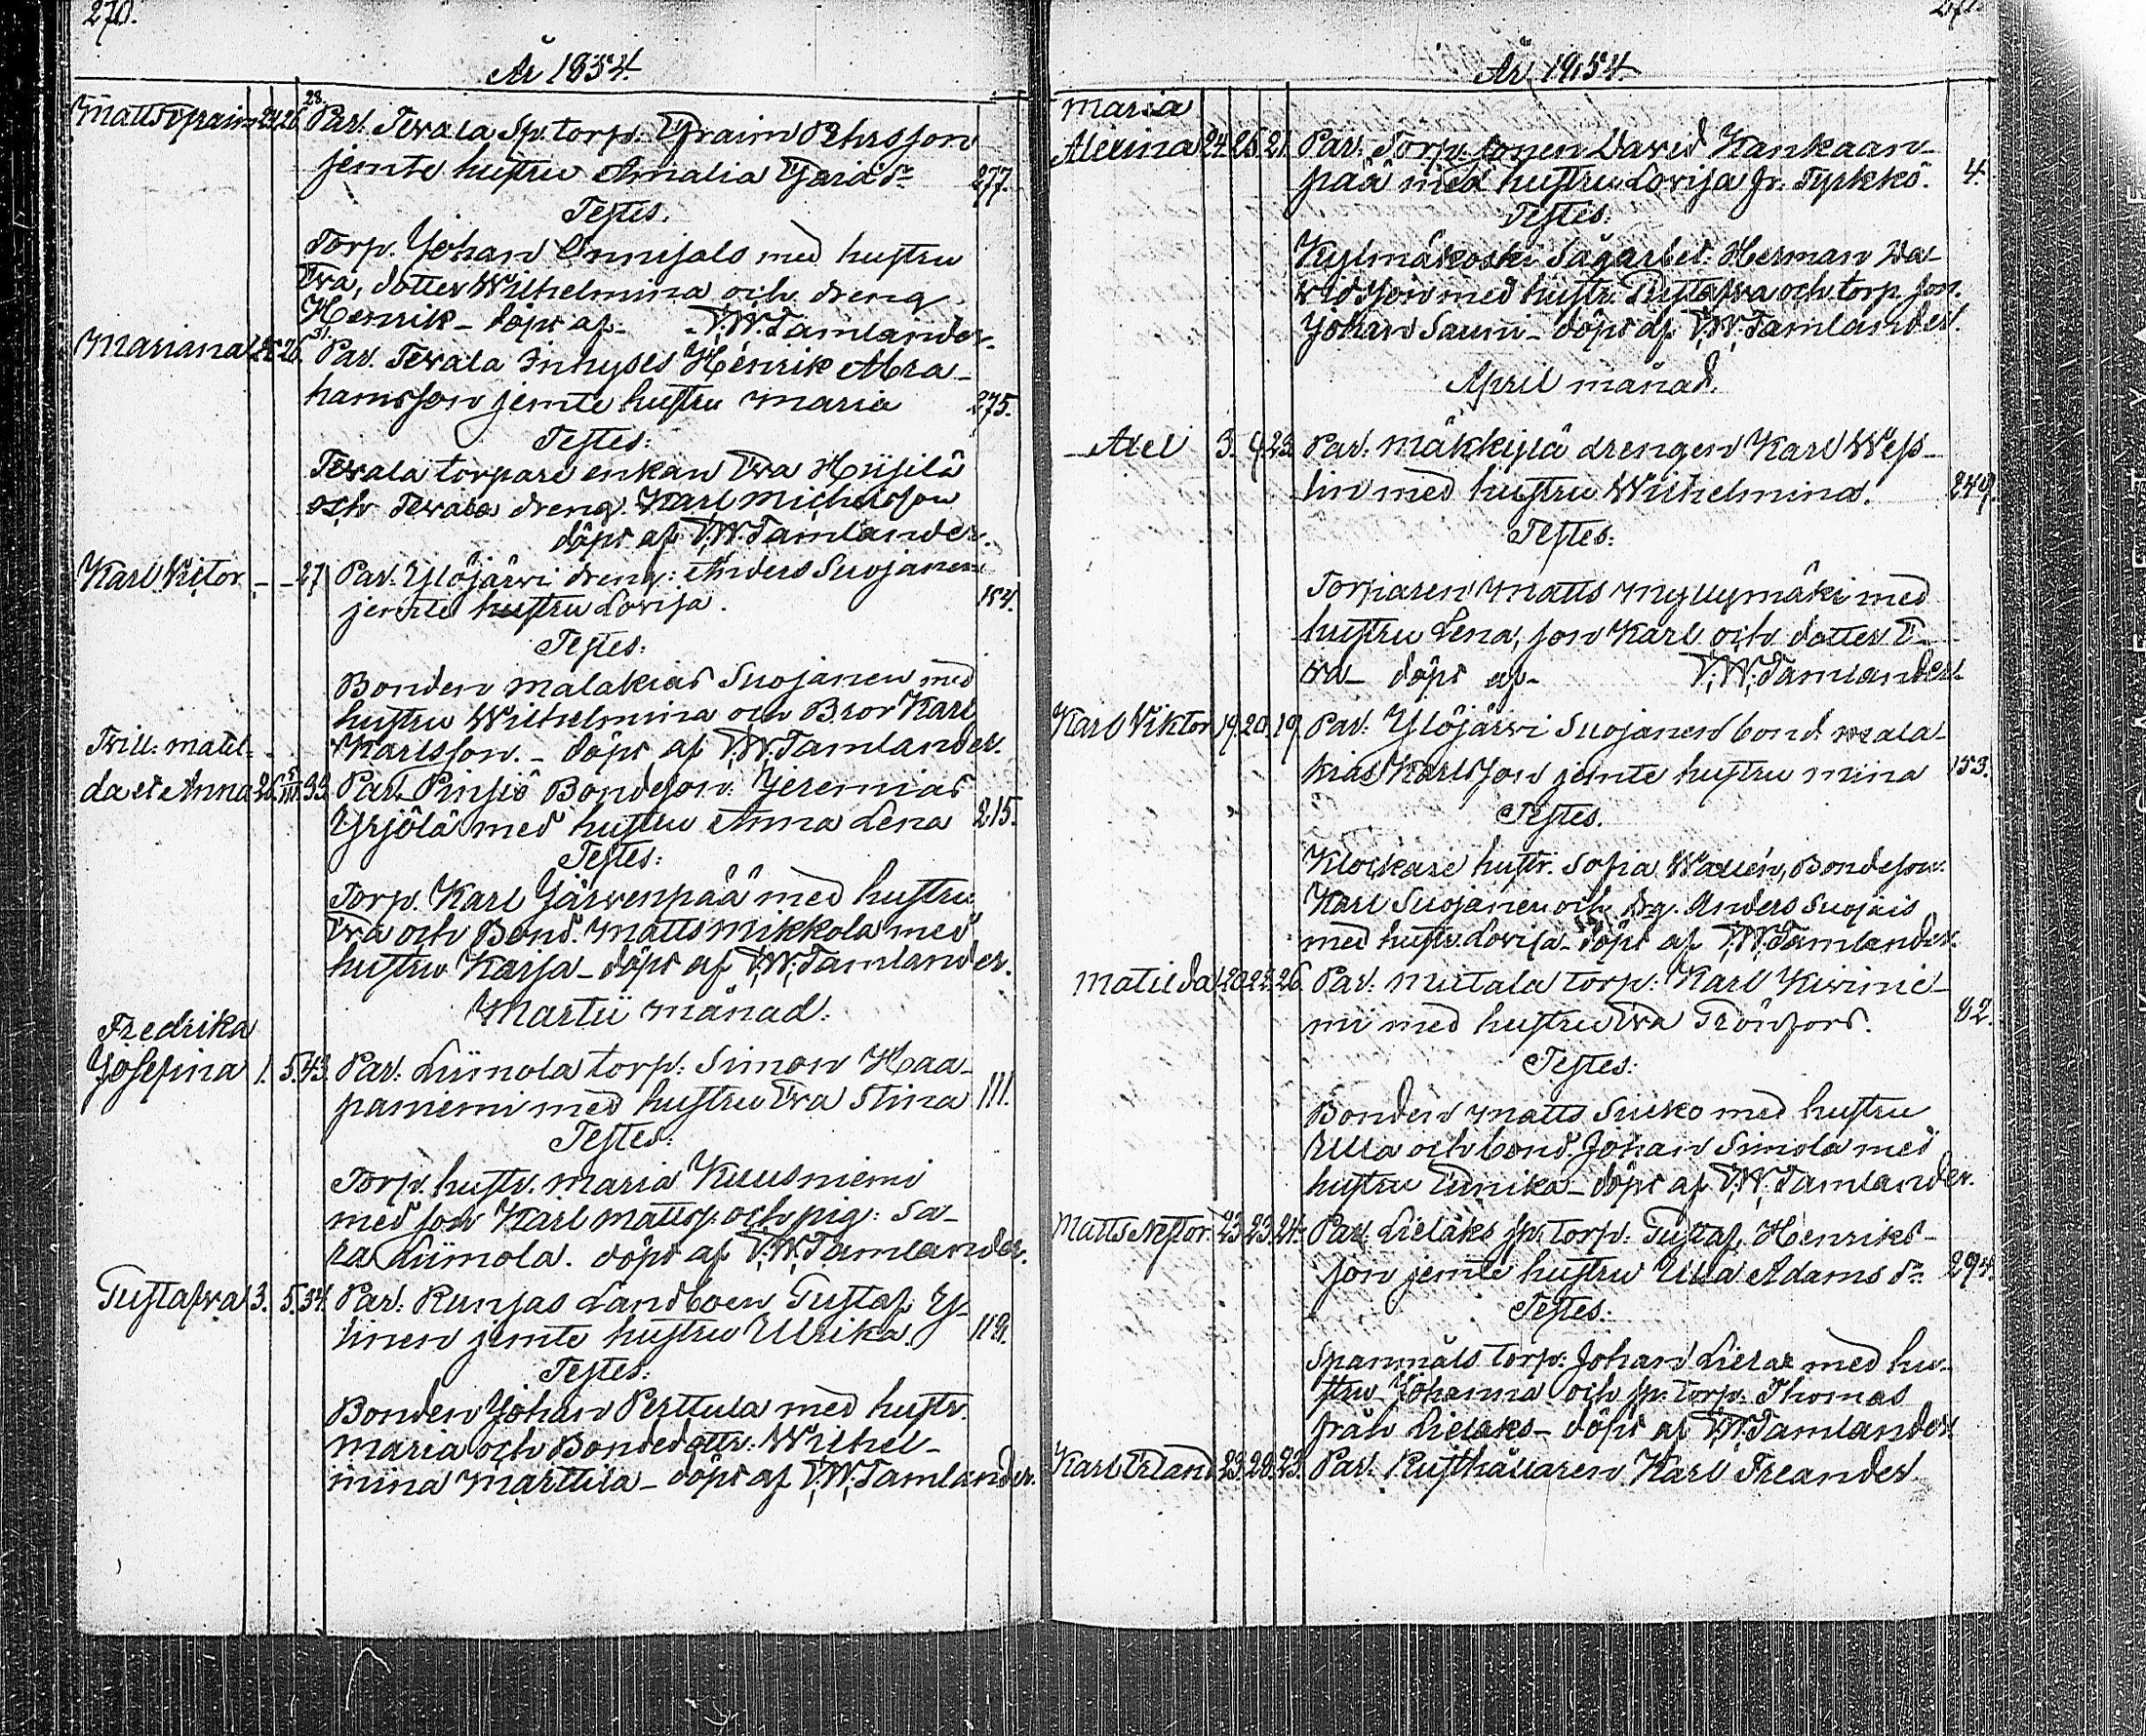 270.
År 1854.
Matts Efraim 24 26 28. Par. Tevala Sp. torp. Efraim Pehrsson
jemte hustru Amalia Esaias dr 277.
Testes.
Torp. Johan Onnisals med hustru
Eva, dotter Wilhelmina och dreng
Henrik - döpt af - F. W. Tamlander.
Mariana 25 26. 31. Par. Tevala Inhyses Henrik Abra-
hamsson jemte hustru Maria 275.
Testes:
Tevala torpare enkan Eva Hiisilä
och Tevala dreng Karl Michelsson
döpt af F. W. Tamlander.
Karl Victor - - 27 Par. Ylöjärvi dreng: Anders Suojanen
jemte hustru Lovisa. 154.
Testes:
Bonden Malakias Suojanen med
hustru Wilhelmina och Bror Karl
Karlsson. - döpt af F. W. Tamlander.
Trill: Matil-
da et Anna 26. 5/III. 33. Par. Pinsiö Bondeson: Jeremias
Yrjölä med hustru Anna Lena 215.
Testes:
Torp. Karl Järvenpää med hustru
Eva och Bond. Matts Mikkola med
hustru Kaisa - döpt af F. W. Tamlander.
Martii månad.
Fredrika
Josefina 1. 5. 43. Par: Liimola torp: Simon Haa-
paniemi med hustru Eva Stina 111.
Testes:
Torp. hustr. Maria Kuusniemi
med son Karl Mattsp. och pig: Sa-
ra Liimola. döpt af F. W. Tamlander.
Gustafva 3. 5. 34. Par: Runsas Landboen Gustaf Y-
linen jemte hustru Ulrika. 119.
Testes:
Bonden Johan Perttula med hustr.
Maria och Bondedottr: Wilhel-
mina Marttila - döpt af F. W. Tamlander.
271.
År 1854.
Maria
Alexina 24. 26. 21. Par. Torp. sonen David Kankaan-
pää med hustru Lovisa fr. Tyrkkö. 4.
Testes:
Kylmäkoski Sågarbet. Herman Da-
vidsson med hustr. Gustafva och torp. son.
Johan Sauni - döpt af F. W. Tamlander.
April månad.
Axel 3. 9. 23. Par. Mäkkylä drengen Karl Wess-
lin med hustru Wilhelmina. 249.
Testes:
Torparen Matts Myllymäki med
hustru Lena, son Karl och dotter E-
va - döpt af - F. W. Tamlander.
Karl Viktor 19. 20. 19. Par. Ylöjärvi Suojanen bond. Mala-
kias Karlsson jemte hustru Mina 153.
Testes.
Klockare hustr. Sofia Wallén, Bondeson.
Karl Suojanen och drg. Anders Suojais
med hustr. Lovisa - döpt af F. W. Tamlander.
Matilda 20. 22. 26. Par. Mutala torp: Karl Kivinie-
mi med hustru Eva Grönfors. 82.
Testes:
Bonden Matts Suiko med hustru
Ulla och bond. Johan Simola med
hustru Eunika - döpt af F. W. Tamlander.
Matts Nestor. 23. 23. 24. Par: Lielaks sp. torp: Gustaf Henriks-
son jemte hustru Ulla Adams dr. 294.
Testes:
Spanmåls torp: Johan Lielax med hu-
stru Johanna och sp. torp. Thomas
från Lielaks - döpt af F. W. Tamlander
Karl Erland 23. 28. 23. Par. Rusthållaren Karl Treander